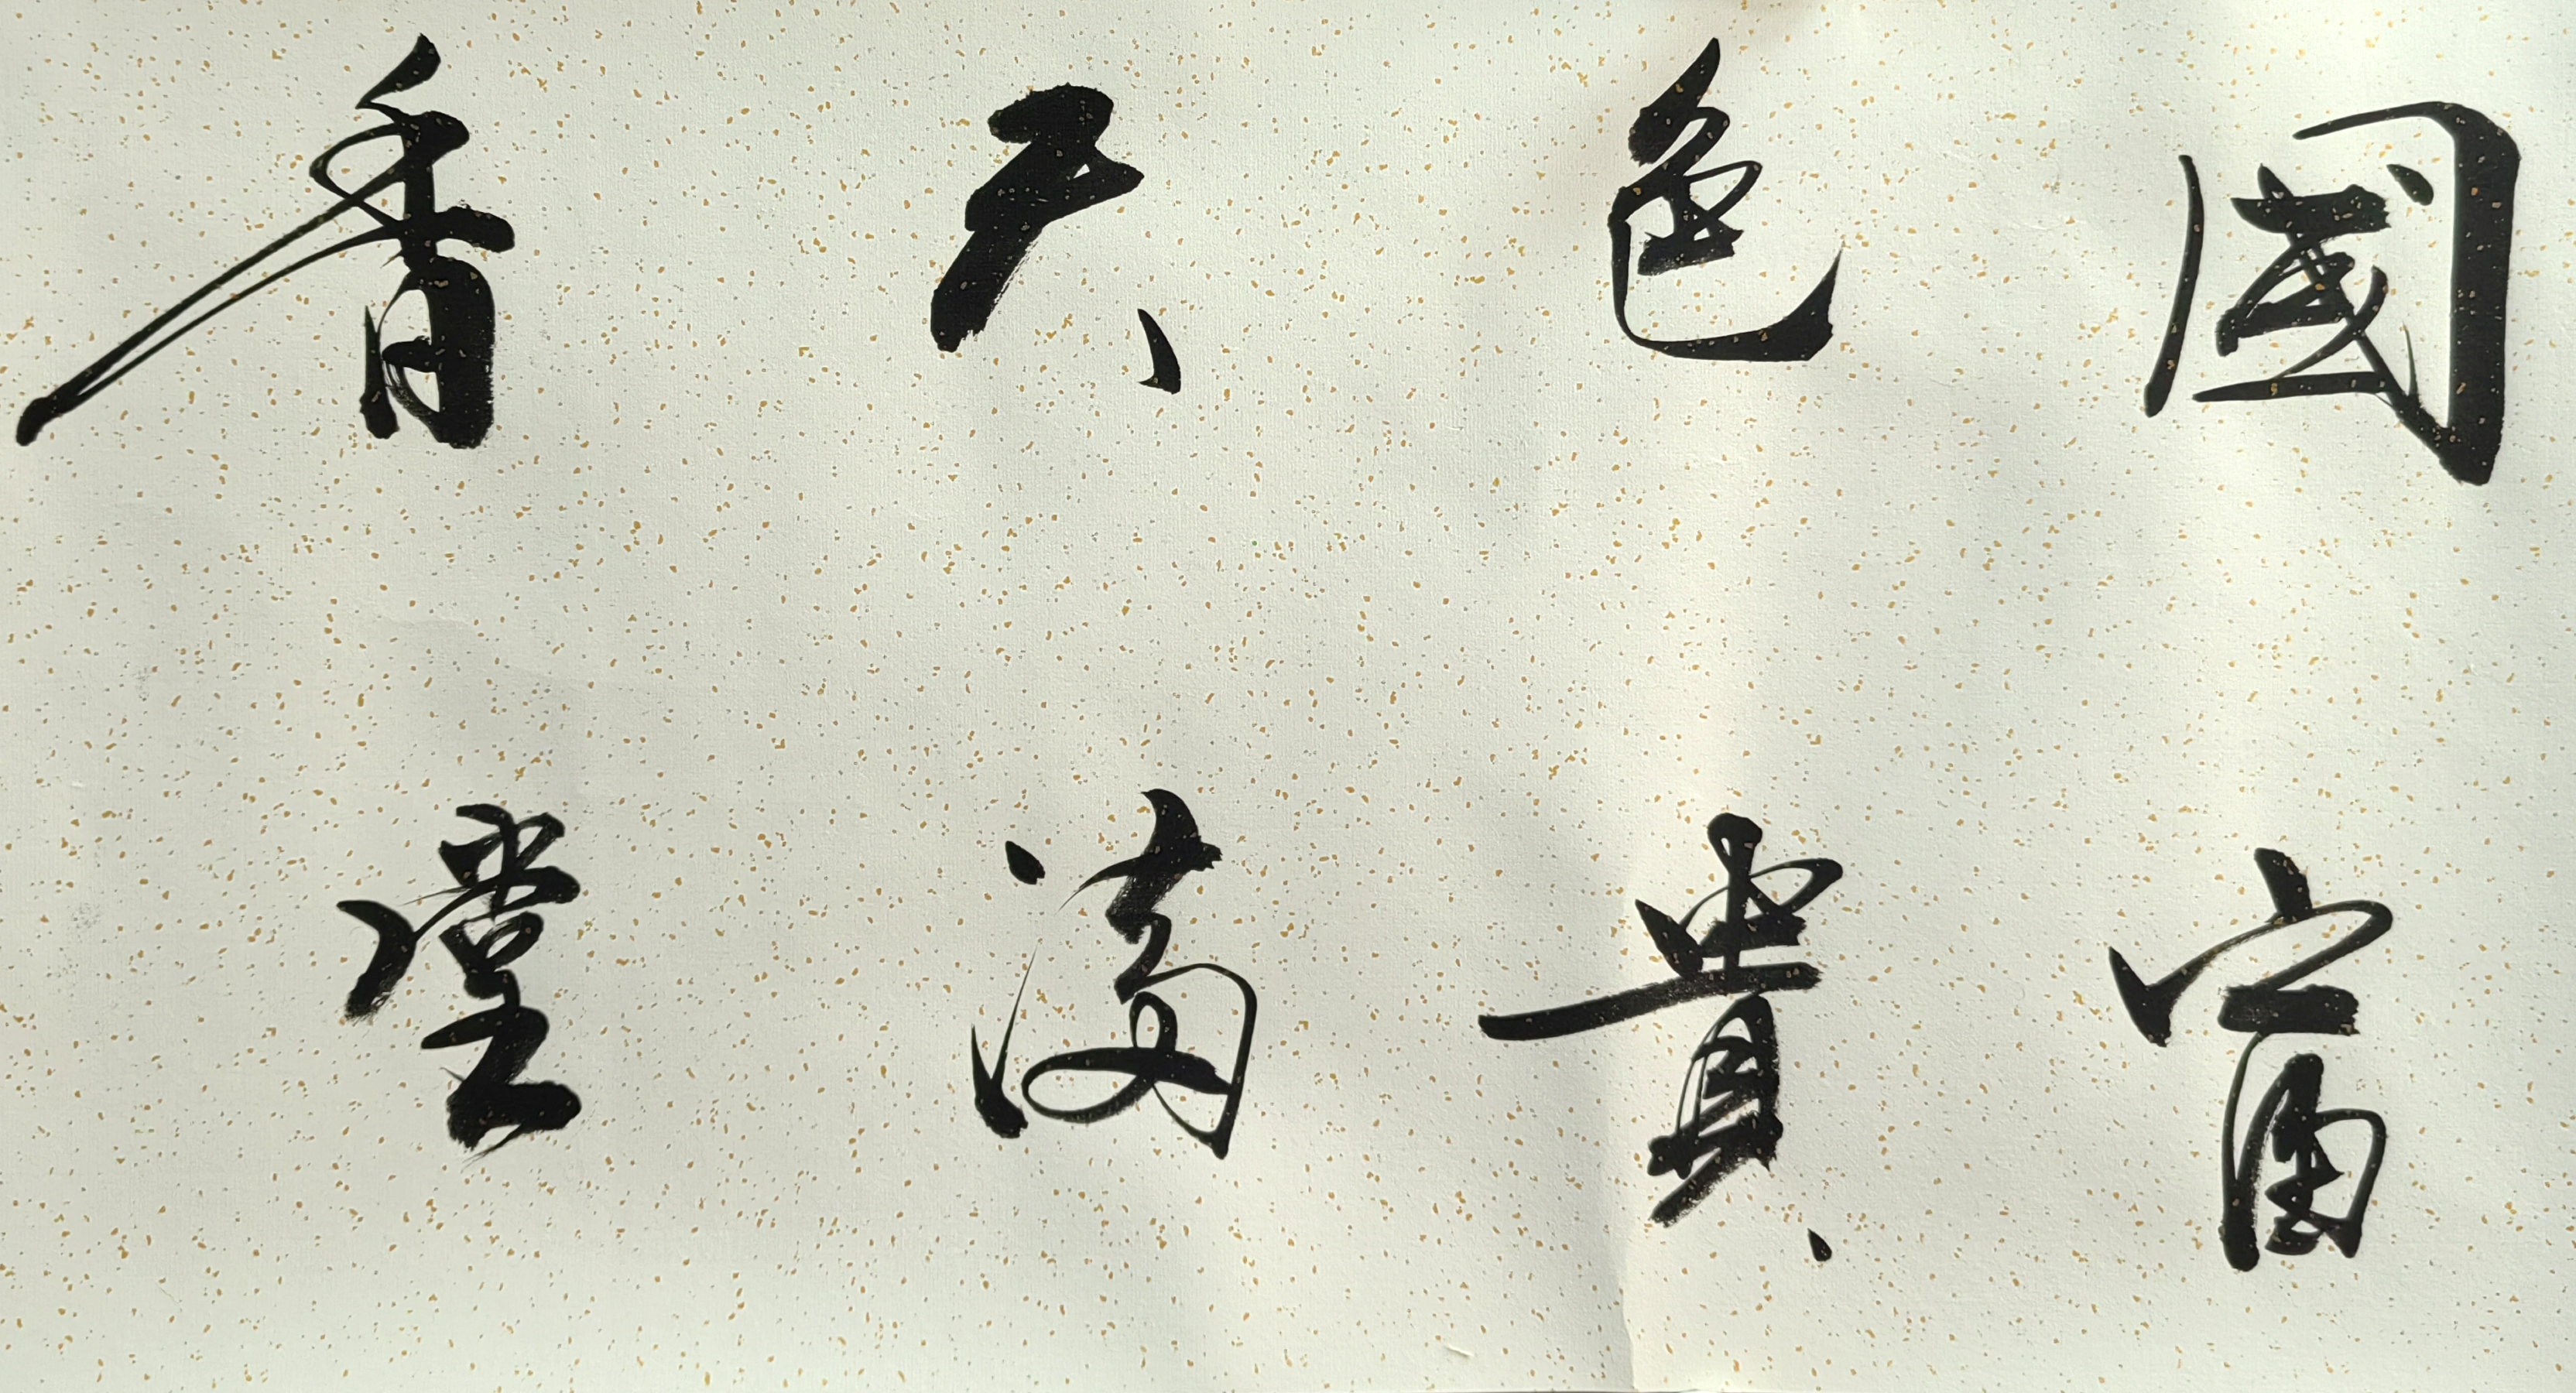 國色天香
富貴滿堂